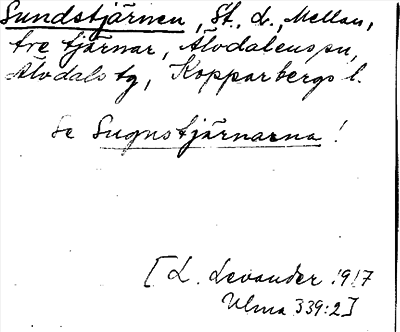 Sundstjärnen, St., L., Mellan,
tre tjärnar, Älvdalens sn,
Älvdals tg, Kopparbergs l.
Se Sugnstjärnarna!
[L. Levander 1917
Ulma 339:2]